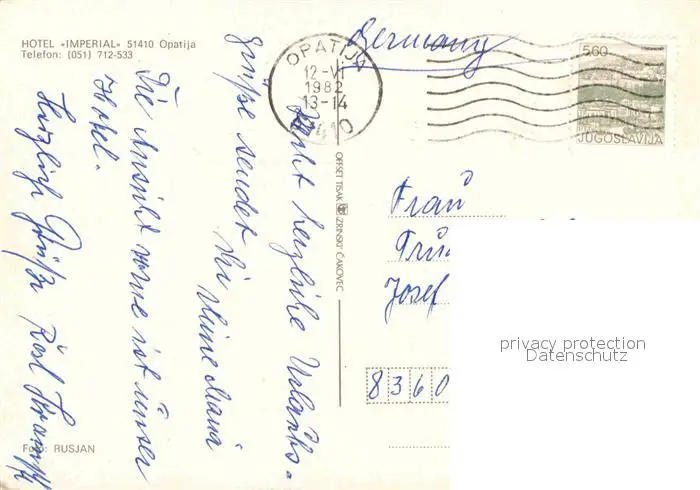 HOTEL «IMPERIAL» 51410 Opatija
Telefon: (051) 712-533
Germany
OPATIJA
12-VI
1982
13-14
51410
5.60
JUGOSLAVIJA
herzliche Urlaubs-
grüße sendet
Die Ansicht vorne ist unser
Hotel.
Herzlich Grüße
OFFSET TISAK ZRINSKI ČAKOVEC
Frau
Josef
8360
Foto: RUSJAN
privacy protection
Datenschutz